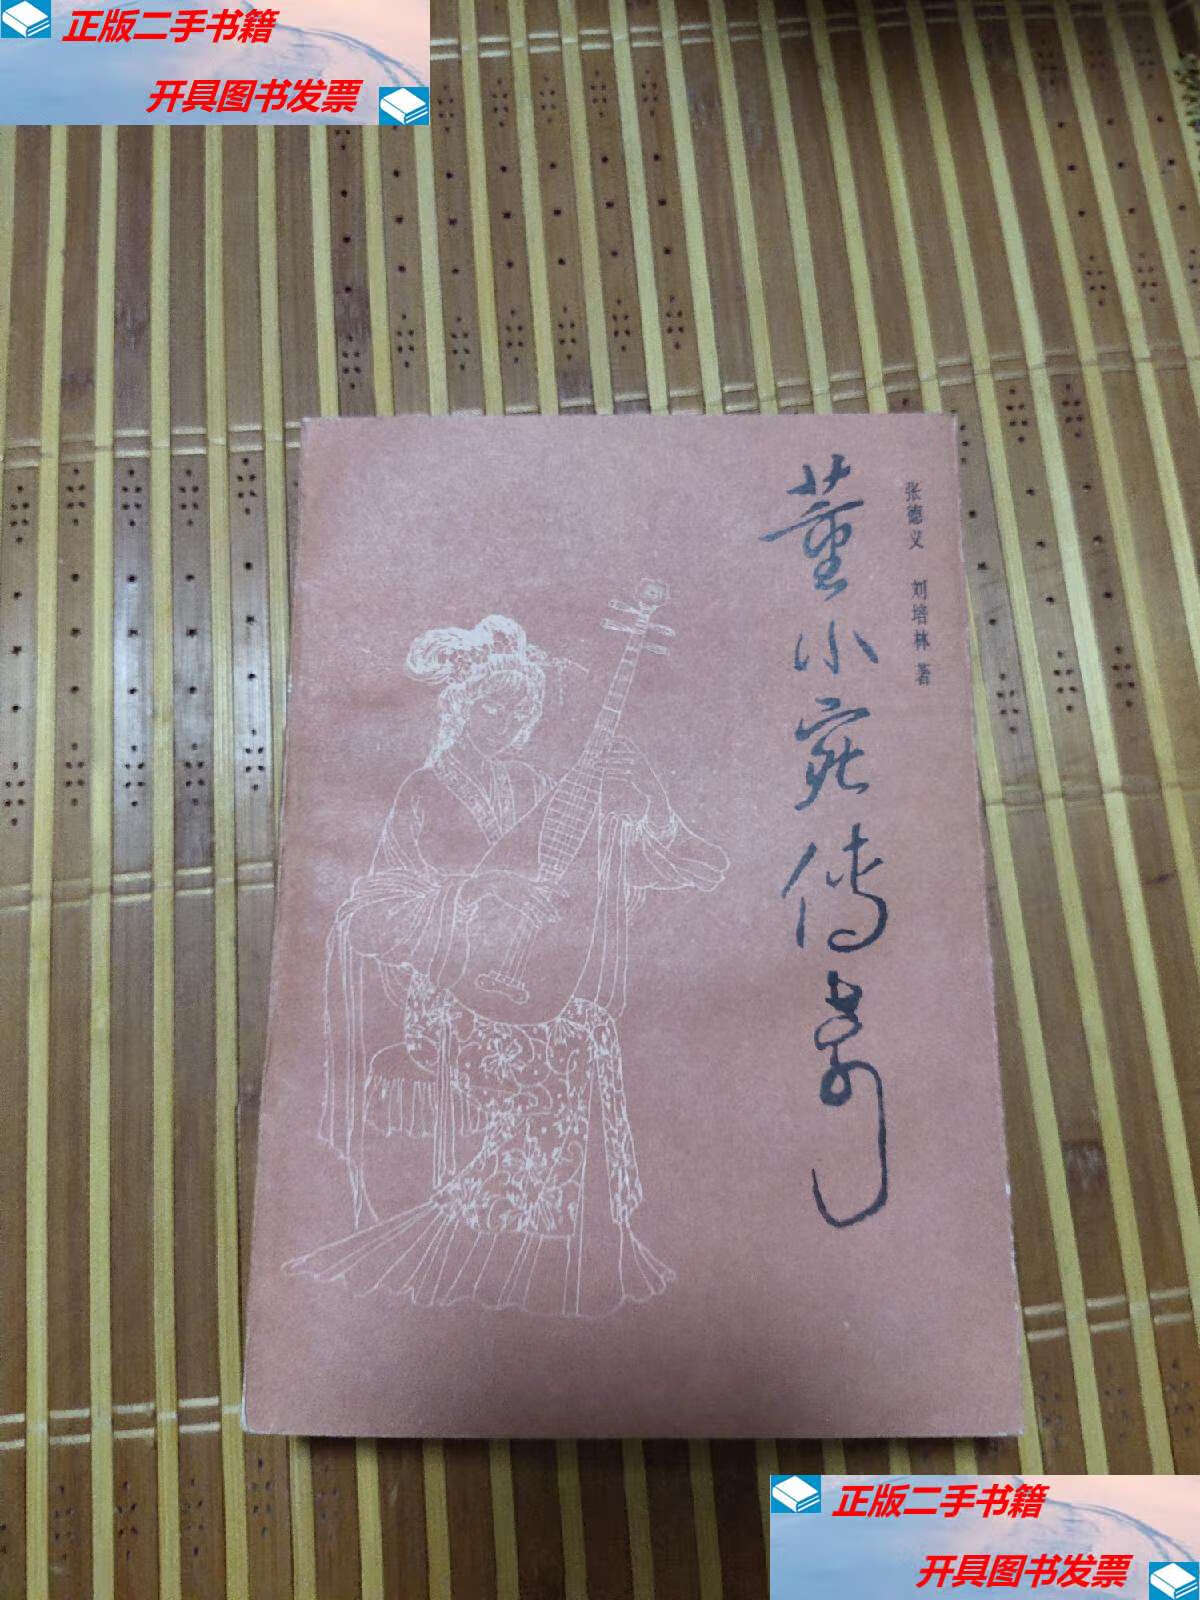 正版二手书籍
开具图书发票
张德义 刘培林 著
董小宛传奇
正版二手书籍
开具图书发票